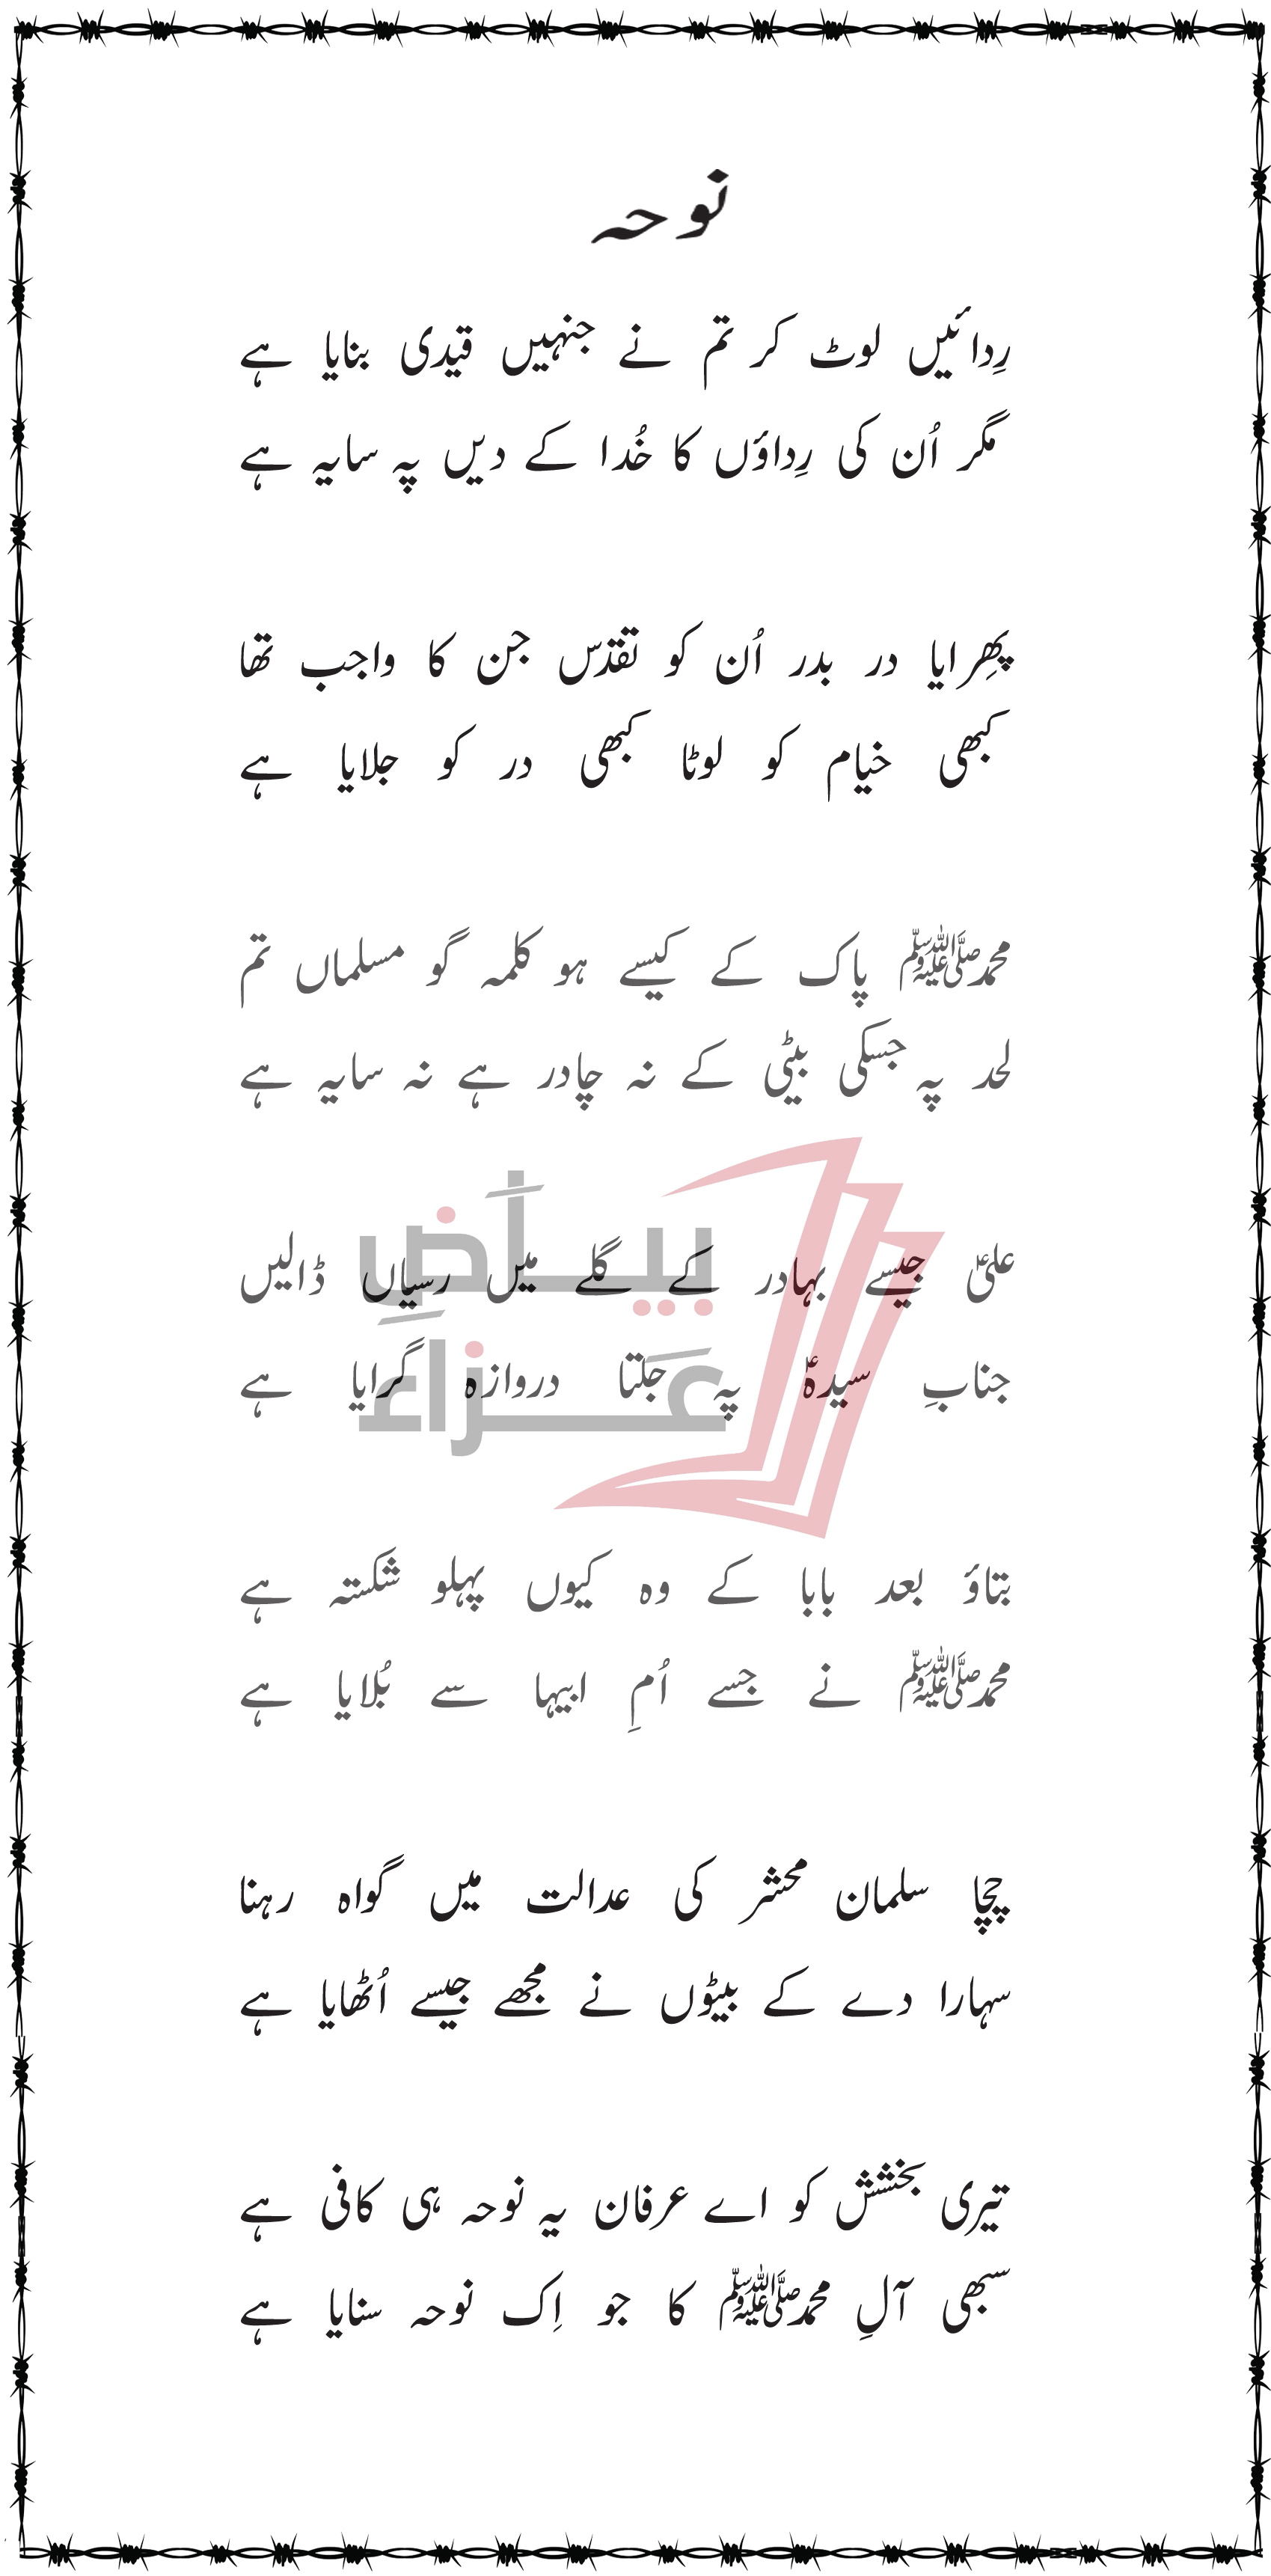 نوحہ
رِدائیں لوٹ کر تم نے جنہیں قیدی بنایا ہے
مگر اُن کی رِداؤں کا خُدا کے دیں پہ سایہ ہے
پھِرایا در بدر اُن کو تقدّس جن کا واجب تھا
کبھی خیام کو لوٹا کبھی در کو جلایا ہے
محمدﷺ پاک کے کیسے ہو کلمہ گو مسلماں تم
لحد پہ جسکی بیٹی کے نہ چادر ہے نہ سایہ ہے
علیؑ جیسے بہادر کے گلے میں رسیاں ڈالیں
جنابِ سیدہؑ پہ جلتا دروازہ گرایا ہے
بیاضِ
عزاء
بتاؤ بعد بابا کے وہ کیوں پہلو شکستہ ہے
محمدﷺ نے جسے اُمِ ابیہا سے بُلایا ہے
چچا سلمان محشر کی عدالت میں گواہ رہنا
سہارا دے کے بیٹوں نے مجھے جیسے اُٹھایا ہے
تیری بخشش کو اے عرفان یہ نوحہ ہی کافی ہے
سبھی آلِ محمدﷺ کا جو اِک نوحہ سنایا ہے